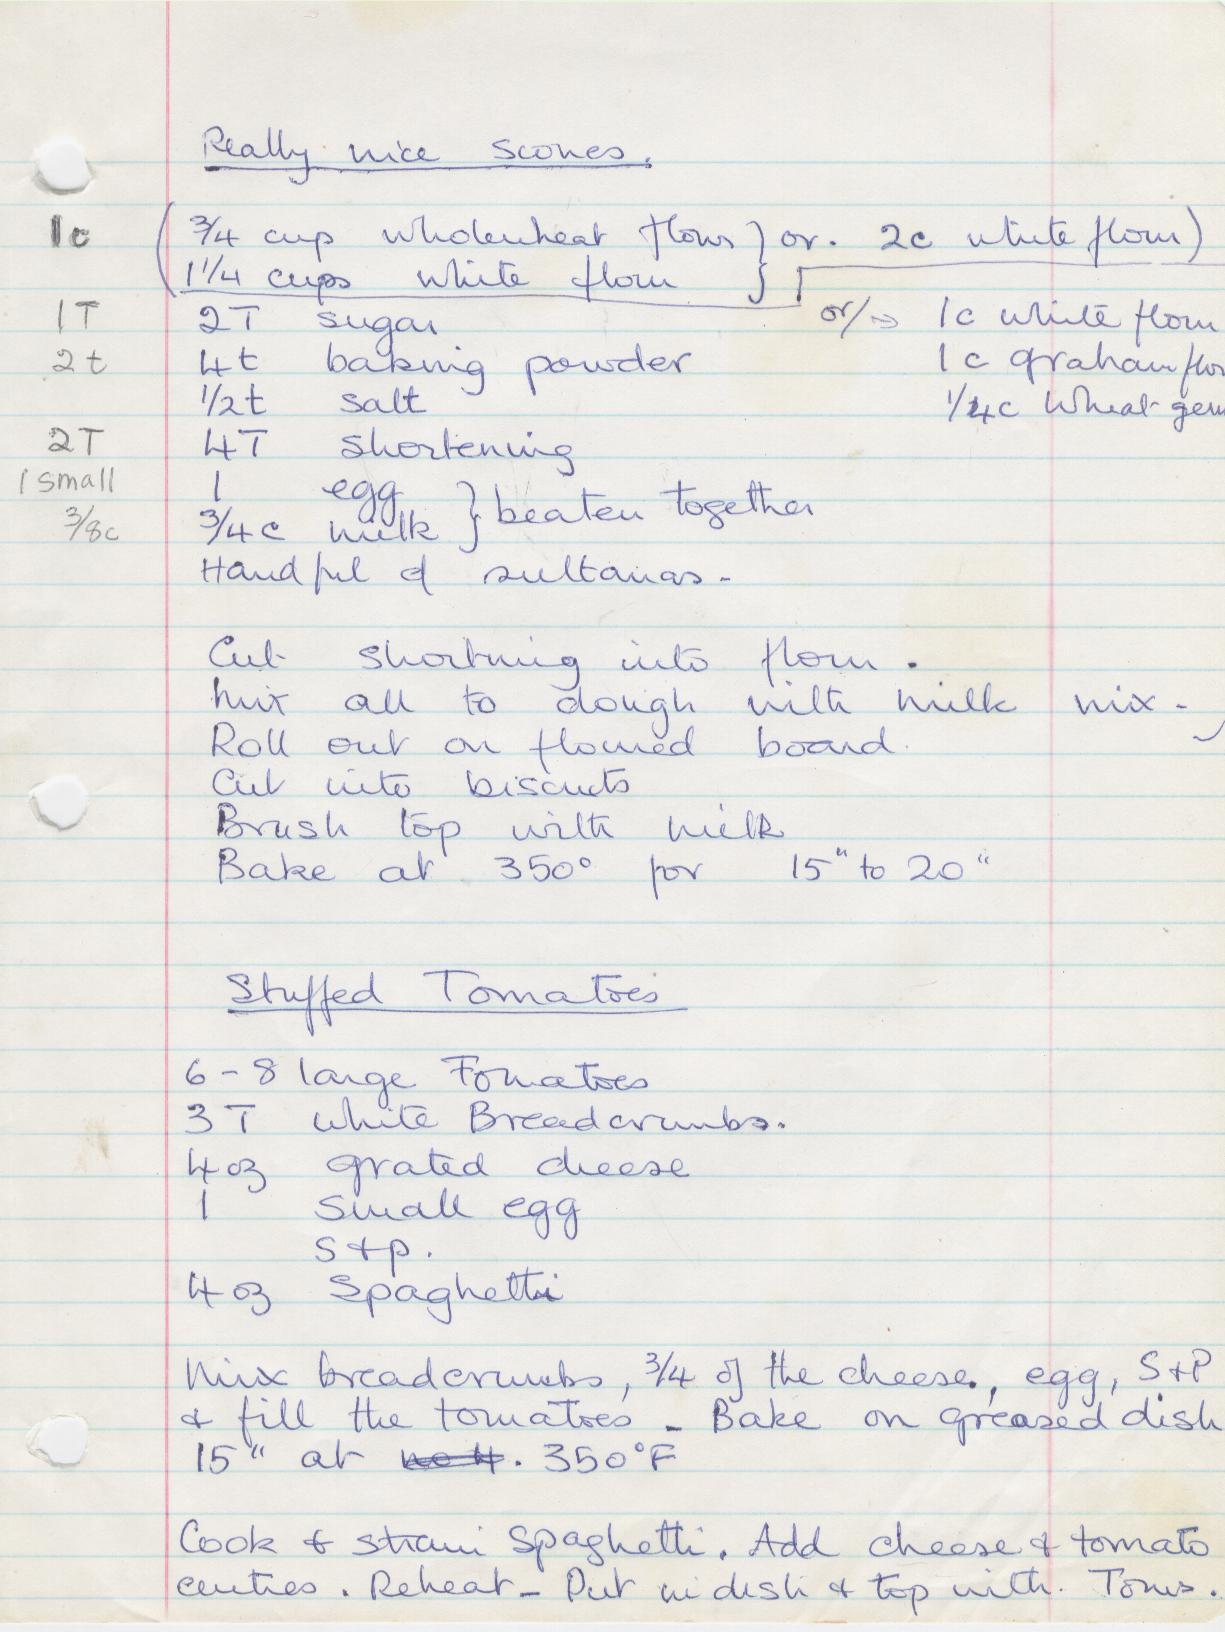 Really nice scones.
1c (3/4 cup wholewheat flour } or. 2c white flour)
1 1/4 cups white flour }
1T 2T sugar or/→ 1c white flour
2t 4t baking powder 1c graham flou
1/2t salt 1/4c Wheat germ
2T 4T shortening
1 small 1 egg } beaten together
3/8c 3/4c milk }
Handful of sultanas-
Cut shortning into flour.
Mix all to dough with milk mix-
Roll out on floured board.
Cut into biscuits
Brush top with milk
Bake at 350° for 15" to 20"
Stuffed Tomatoes
6-8 large Tomatoes
3T white Breadcrumbs.
4oz grated cheese
1 small egg
S+p.
4oz Spaghetti
Mix breadcrumbs, 3/4 of the cheese, egg, S+P
+ fill the tomatoes - Bake on greased dish
15" at no 4. 350°F
Cook + strain Spaghetti. Add cheese + tomato
centres. Reheat - Put in dish + top with Toms.